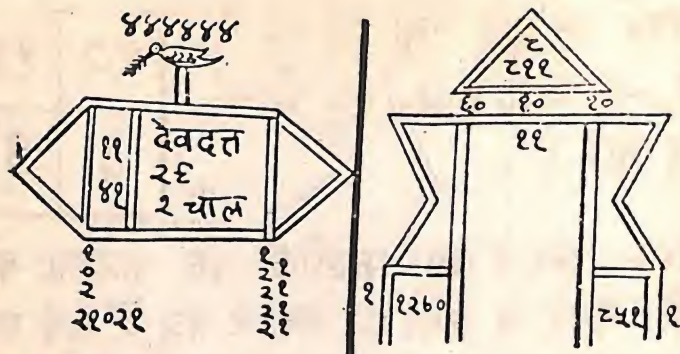 ४४४४४४
११
४१
देवदत्त
२६
२ चाल
१
०
२
२१०२१
१
२१
२१
२१
२१
८
८११
६० १० १०
११
१
१२७०
८५१
१